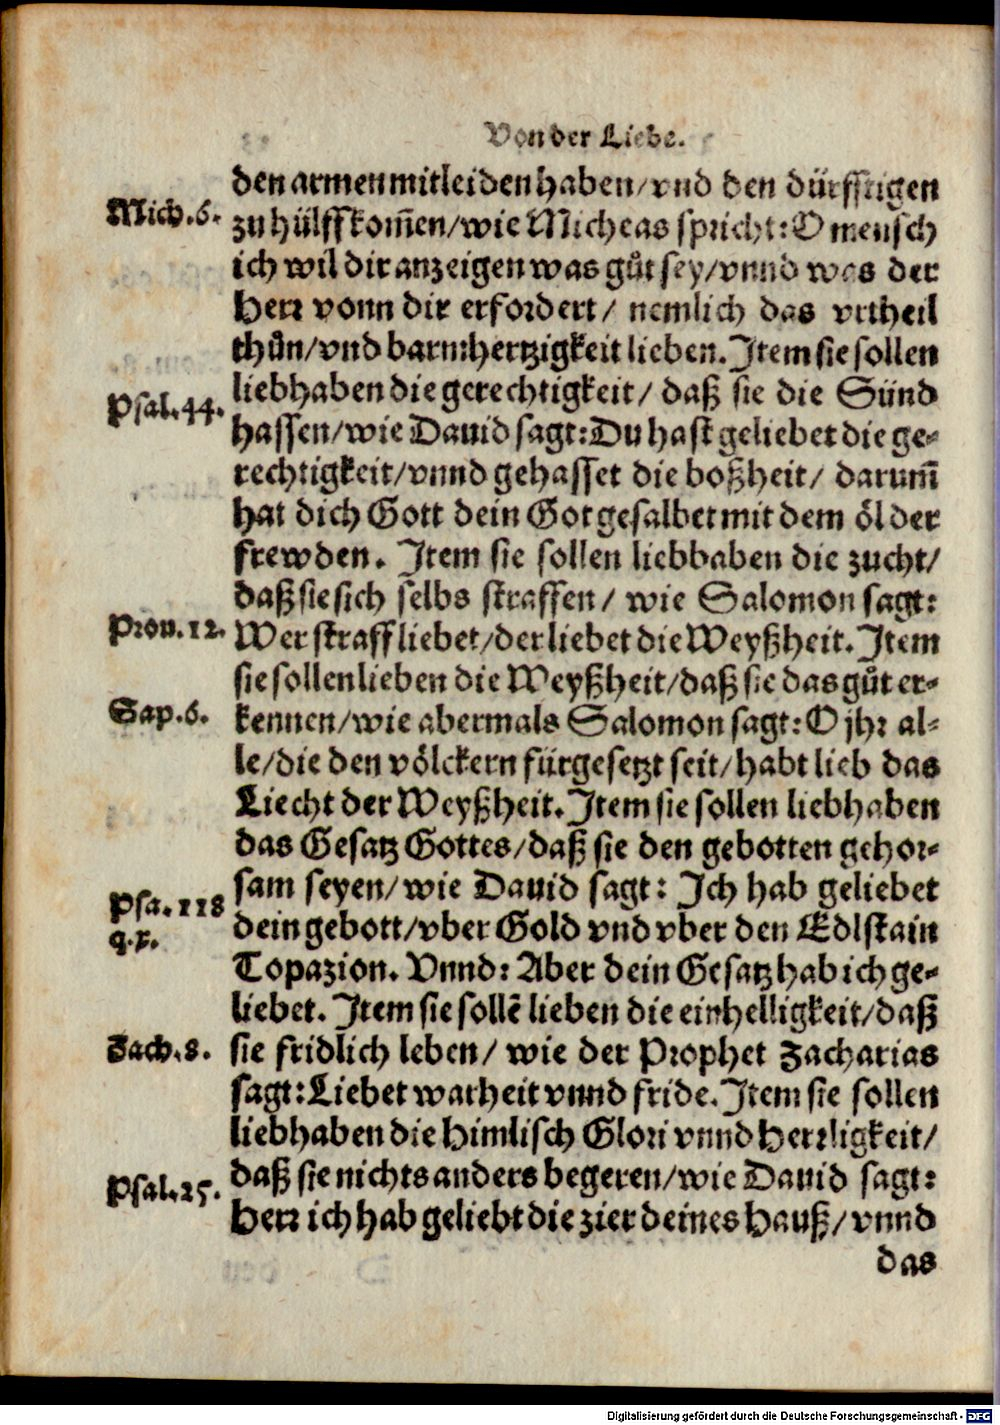 Von der Liebe.
den armen mitleiden haben/ vnd den dürfftigen
Mich. 6.
zu hülff kom̄en/ wie Micheas spricht: O mensch
ich wil dir anzeigen was gůt sey/ vnnd was der
Herr vonn dir erfordert/ nemlich das vrtheil
thůn/ vnd barmhertzigkeit lieben. Item sie sollen
liebhaben die gerechtigkeit/ daß sie die Sünd
Psal. 44.
hassen/ wie Dauid sagt: Du hast geliebet die ge-
rechtigkeit/ vnnd gehasset die boßheit/ darum̄
hat dich Gott dein Got gesalbet mit dem öl der
frewden. Item sie sollen liebhaben die zucht/
daß sie sich selbs straffen/ wie Salomon sagt:
Prou. 12.
Wer straff liebet/ der liebet die Weyßheit. Item
sie sollen lieben die Weyßheit/ daß sie das gůt er-
Sap. 6.
kennen/ wie abermals Salomon sagt: O jhr al-
le/ die den völckern fürgesetzt seit/ habt lieb das
Liecht der Weyßheit. Item sie sollen liebhaben
das Gesatz Gottes/ daß sie den gebotten gehor-
sam seyen/ wie Dauid sagt: Ich hab geliebet
Psa. 118
dein gebott/ vber Gold vnd vber den Edlstain
q. x.
Topazion. Vnnd: Aber dein Gesatz hab ich ge-
liebet. Item sie sollē lieben die einhelligkeit/ daß
Zach. 8.
sie fridlich leben/ wie der Prophet Zacharias
sagt: Liebet warheit vnnd fride. Item sie sollen
liebhaben die Himlisch Glori vnnd Herrligkeit/
daß sie nichts anders begeren/ wie Dauid sagt:
Psal. 25.
Herr ich hab geliebt die zier deines Hauß/ vnnd
das
Digitalisierung gefördert durch die Deutsche Forschungsgemeinschaft - DFG